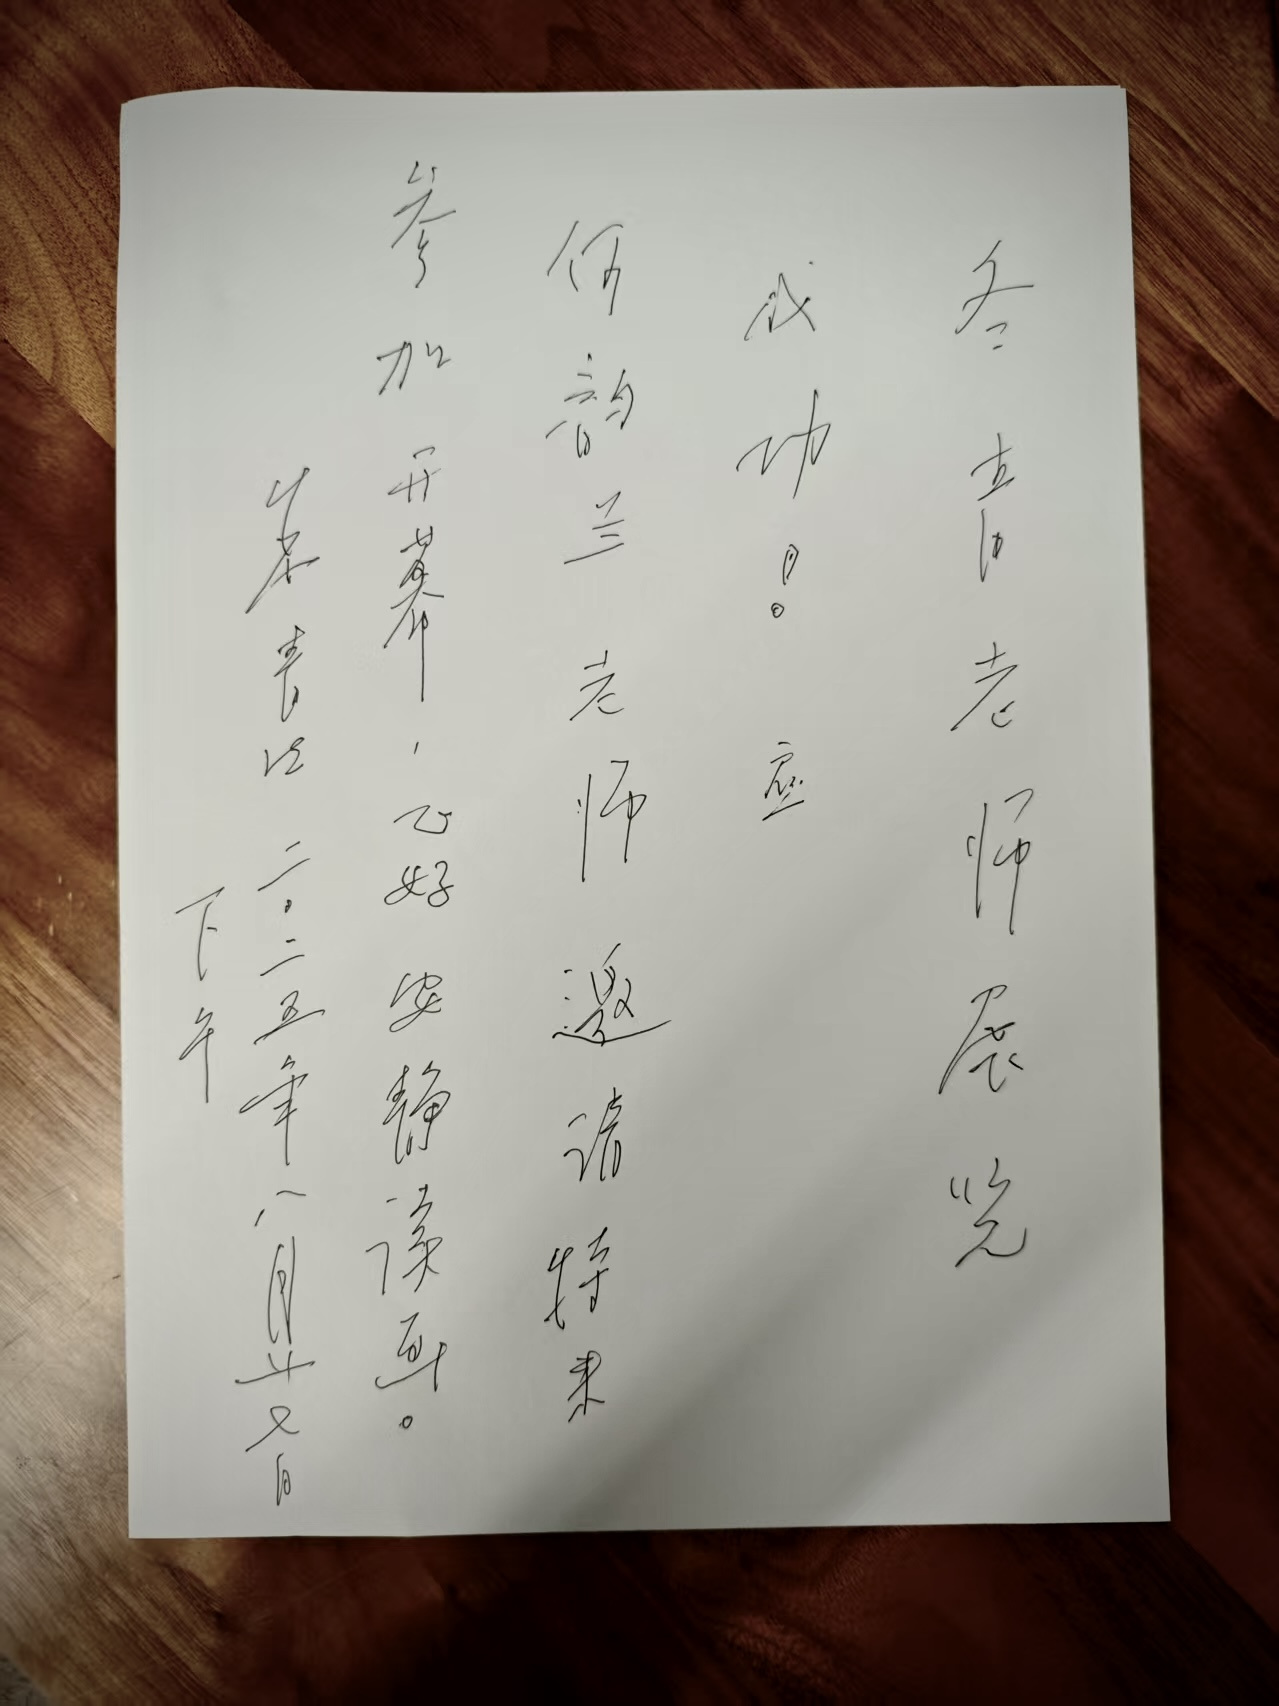 冬青老师展览
成功！应
何韵兰老师邀请特来
参加开幕，正好安静读画。
青 二〇二五年八月廿七日
下午